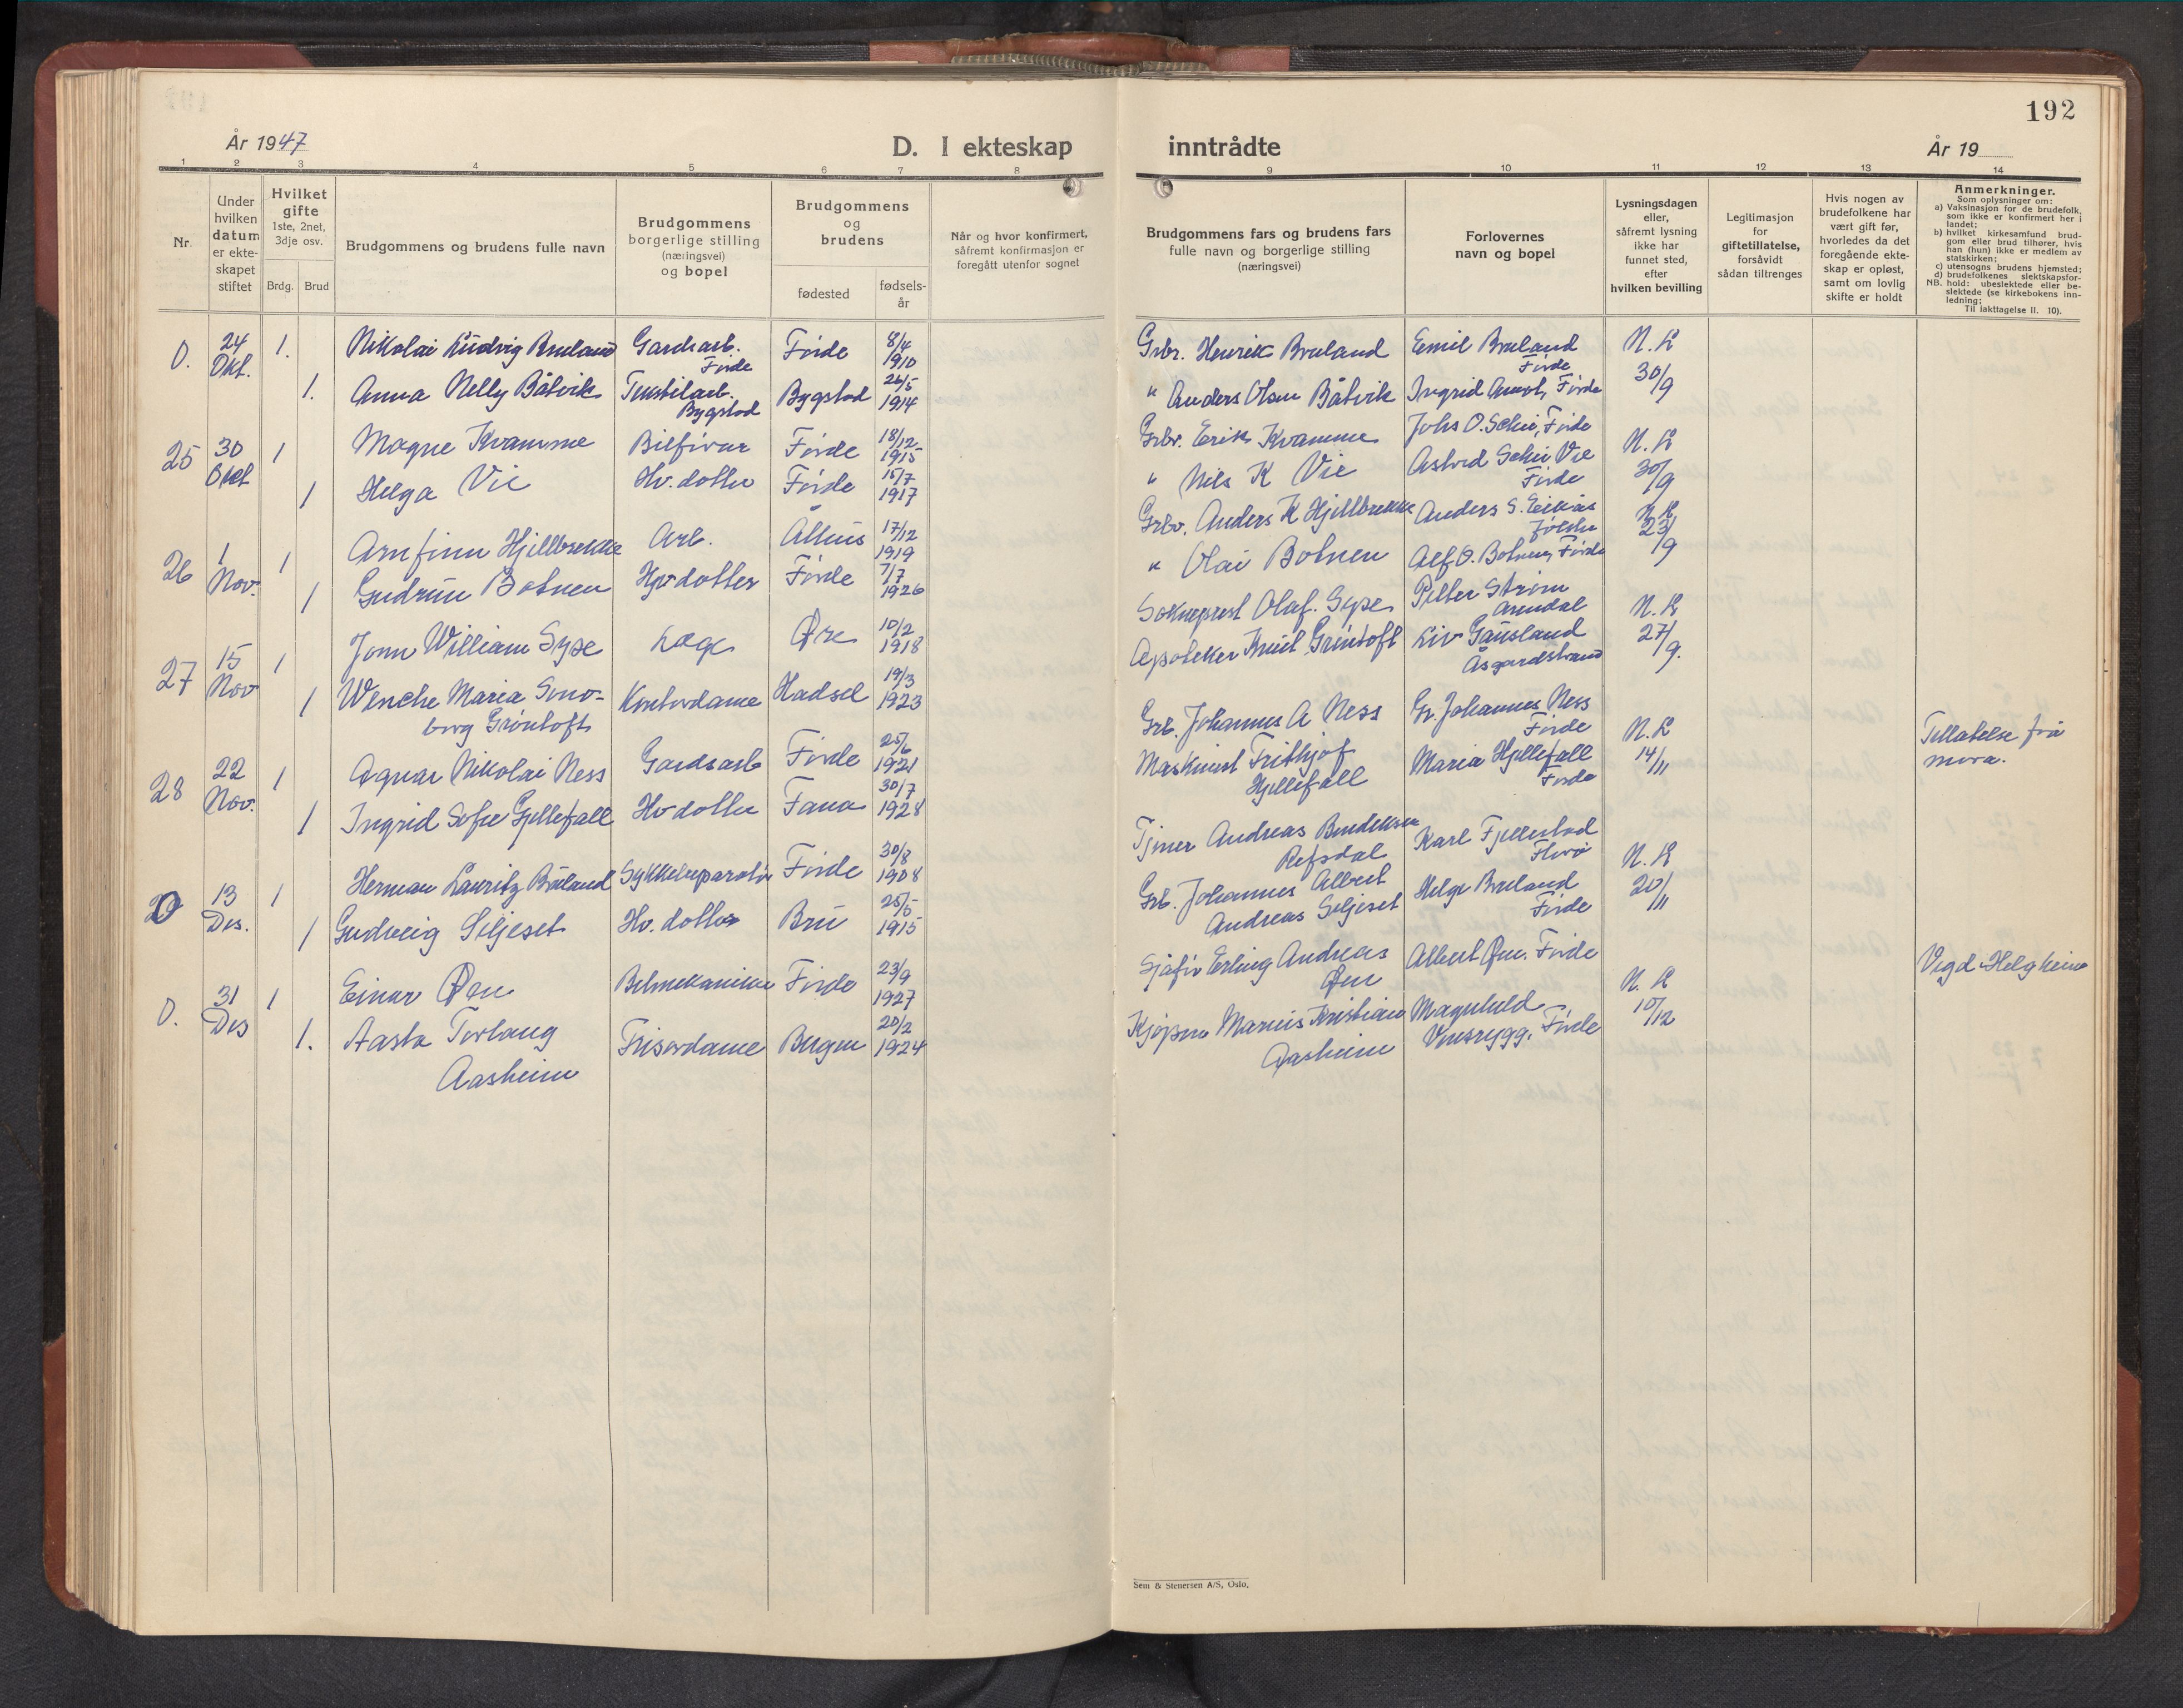 192
År 1947
D. I ekteskap inntrådte
År 19
1 2 3 4 5 6 7 8 9 10 11 12 13 14
Nr.
Under hvilken datum er ekteskapet stiftet
Hvilket gifte 1ste, 2net, 3dje osv.
Brdg. Brud
Brudgommens og brudens fulle navn
Brudgommens borgerlige stilling (næringsvei) og bopel
Brudgommens og brudens
fødested
fødselsår
Når og hvor konfirmert, såfremt konfirmasjon er foregått utenfor sognet
Brudgommens fars og brudens fars fulle navn og borgerlige stilling (næringsvei)
Forlovernes navn og bopel
Lysningsdagen eller, såfremt lysning ikke har funnet sted, efter hvilken bevilling
Legitimasjon for giftetillatelse, forsåvidt sådan tiltrenges
Hvis nogen av brudefolkene har vært gift før, hvorledes da det foregående ekteskap er opløst, samt om lovlig skifte er holdt
Anmerkninger.
Som oplysninger om:
a) Vaksinasjon for de brudefolk, som ikke er konfirmert her i landet;
b) hvilket kirkesamfund brudgom eller brud tilhører, hvis han (hun) ikke er medlem av statskirken;
c) utensogns brudens hjemsted;
d) brudefolkenes slektskapsforhold: ubeslektede eller beslektede (se kirkebokens innledning;
NB.
Til iakttagelse II. 10).
0. 24 Okt. 1. Nikolai Ludvig Bruland Gardsarb. Førde Førde 8/4 1910 Grbr. Henrik Bruland Emil Bruland Førde N. K 30/9
1. Anna Nelly Båtvik Tekstilarb. Bygstad Bygstad 26/5 1914 " Anders Olsen Båtvik Ingrid Førde
25 30 Okt 1 Magne Kvamme Bilførar Førde 18/12 1915 Grbr. Erik Kvamme Johs O. Førde N. K 30/9
1 Helga Vie Hv. dotter Førde 15/7 1917 " Nils K Vie Astrid Vie Førde
26 1 Nov. 1 Arnfinn Hjellbrekke Arb. Ålhus 17/12 1919 Grbr. Anders K Hjellbrekke Anders S. Eikås Jølster N. K 23/9
1 Gudrun Botnen Hv dotter Førde 7/7 1926 " Olai Botnen Alf O. Botnen, Førde
27 15 Nov 1 John William Sype Læge Øre 10/2 1918 Sokneprest Olaf. Sype Petter Strøm Arendal N. K 27/9.
1 Wenche Maria Sono-
borg Grøntoft Kontordame Hadsel 19/3 1923 Apoteker Knut Grøntoft Liv Gausland Åsgardstrand
28 22 Nov. 1 Agnar Nikolai Ness Gardsarb Førde 25/6 1921 Grb. Johannes A Ness Gr. Johannes Ness Førde N. K 14/11 Tillatelse frå mora.
1 Ingrid Sofie Hjellefall Hv dotter Fana 30/7 1928 Maskinist Frithjof Hjellefall Maria Hjellefall Førde
0 13 Des. 1 Herman Lauritz Bruland Sykkelreparatør Førde 30/8 1908 Tjener Andreas Bendiksen Refsdal Karl Fjellestad Florø N. K 20/11
1 Gudveig Seljeset Hv. dotter Bru 25/5 1915 Grb. Johannes Albert Andreas Seljeset Helge Bruland Førde
0. 31 Des 1 Einar Øen Bilmekaniker Førde 23/9 1927 Sjåfør Erling Andreas Øen Albert Øen. Førde N. K 10/12 Vigd i Helgheim
1. Aasta Torlaug
Aasheim Frisørdame Bergen 20/2 1924 Kjøpm Marius Kristian Aasheim Magnhild Førde
Sem & Stenersen A/S, Oslo.